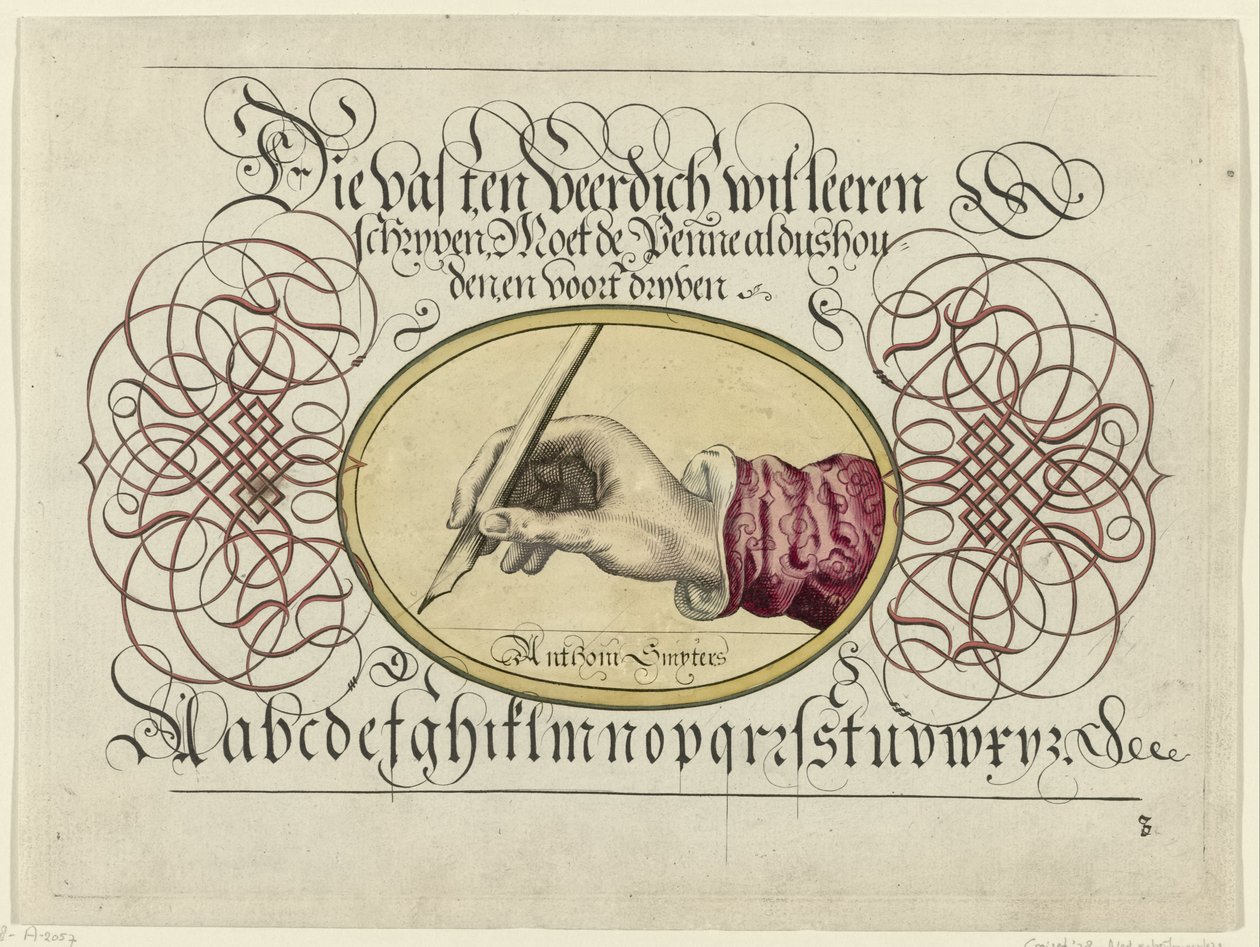 Die vast, en veerdich wil leeren
schryven, Moet de Penne aldus hou=
den, en voort dryven
Anthoni Smyters
A a b c d e f g h i k l m n o p q r r ſ s t u v w x y z.
8
A-2057